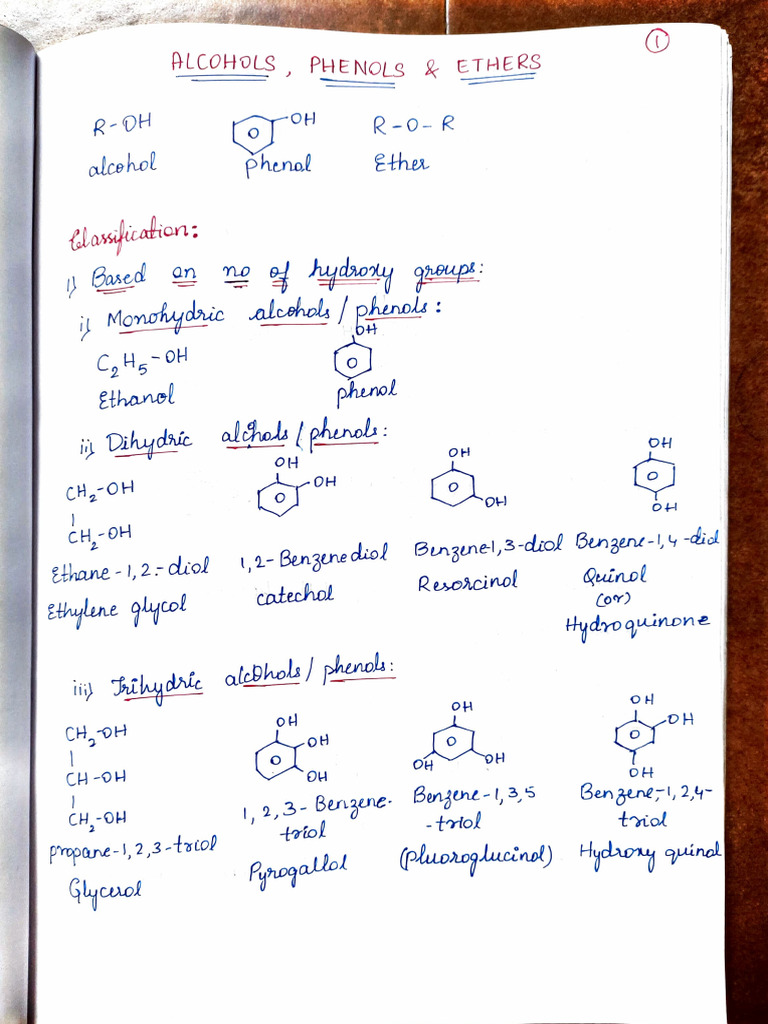 1
ALCOHOLS, PHENOLS & ETHERS
R-OH
OH
R-O-R
alcohol
phenol
Ether
Classification:
1) Based on no of hydroxy groups:
i) Monohydric alcohols / phenols:
C2H5-OH
OH
Ethanol
phenol
ii) Dihydric alcohols / phenols:
CH2-OH
CH2-OH
OH
OH
OH
OH
OH
OH
Ethane-1,2-diol
1,2-Benzenediol
Benzene-1,3-diol
Benzene-1,4-diol
Ethylene glycol
catechol
Resorcinol
Quinol
(or)
Hydroquinone
iii) Trihydric alcohols / phenols:
CH2-OH
CH-OH
CH2-OH
OH
OH
OH
OH
OH
OH
OH
OH
OH
propane-1,2,3-triol
1,2,3-Benzene-
triol
Benzene-1,3,5
-triol
Benzene,-1,2,4-
triol
Glycerol
Pyrogallol
(pluoroglucinol)
Hydroxy quinol